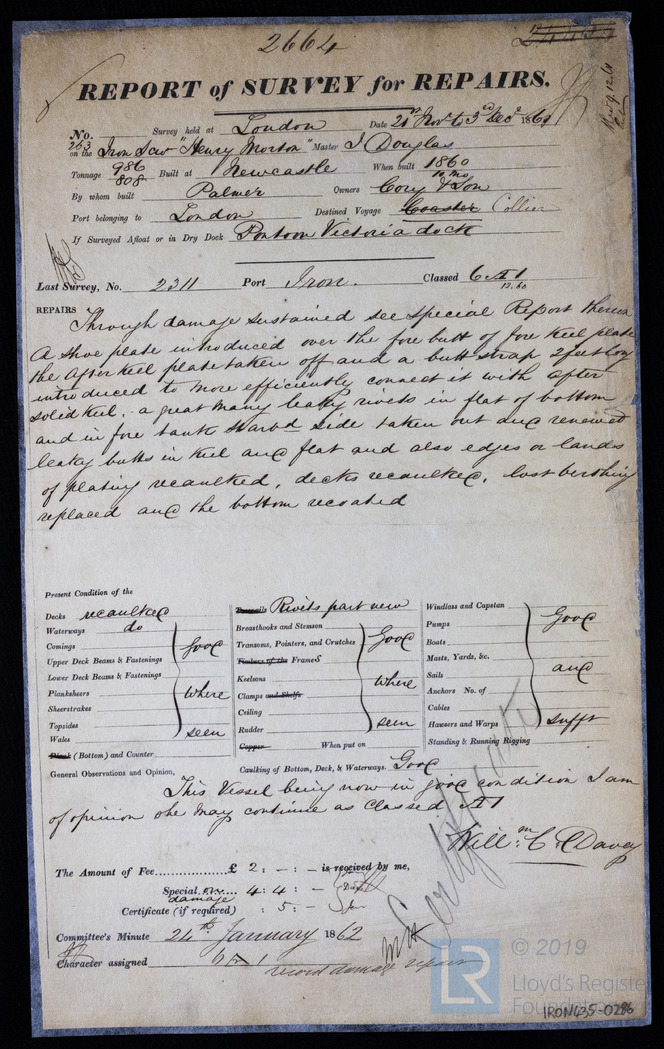 2664
REPORT of SURVEY for REPAIRS.
No. 263 Survey held at London Date 21st Novr to 3rd Decr 1861
on the Iron Scw "Henry Morton" Master J Douglas
Tonnage 986 808 Built at Newcastle When built 1860 10 mo
By whom built Palmer Owners Cory & Son
Port belonging to London Destined Voyage Coaster Collier
If Surveyed Afloat or in Dry Dock Pontoon Victoria dock
Last Survey, No. 2311 Port Iron. Classed 6 A 1
12.60
REPAIRS Through damage sustained see special Report thereon
A shoe plate introduced over the fore butt of fore keel plate
the after keel plate taken off and a butt strap 2 feet long
introduced to more efficiently connect it with after
solid keel. a great many leaky rivets in flat of bottom
and in fore tank starbd side taken out and renewed
leaky butts in keel and flat and also edges or lands
of plating recaulked, decks recaulked, lost berthing
replaced and the bottom recoated
Present Condition of the
Decks recaulked
Waterways do
Comings
Upper Deck Beams & Fastenings
Lower Deck Beams & Fastenings
Planksheers
Sheerstrakes
Topsides
Wales
(Bottom) and Counter
Good where seen
Treenails Rivets part new
Breasthooks and Stemson
Transoms, Pointers, and Crutches
Timbers of the Frames
Keelsons
Clamps and Shelfs
Ceiling
Rudder
Copper When put on
Good where seen
Caulking of Bottom, Deck, & Waterways. Good
Windlass and Capstan
Pumps
Boats
Masts, Yards, &c.
Sails
Anchors No. of
Cables
Hawsers and Warps
Standing & Running Rigging
Good and sufft
General Observations and Opinion,
This Vessel being now in good condition I am
of opinion she may continue as Classed A 1
Willm C Davey
The Amount of Fee............£ 2 : - : - is received by me,
Special damage 4 : 4 : -
Certificate (if required) : 5 : -
Committee's Minute 24th January 1862
Character assigned 6 A 1
record damage repair
Certificate
© 2019
LR
Lloyd's Register
Foundation
IRON435-0286